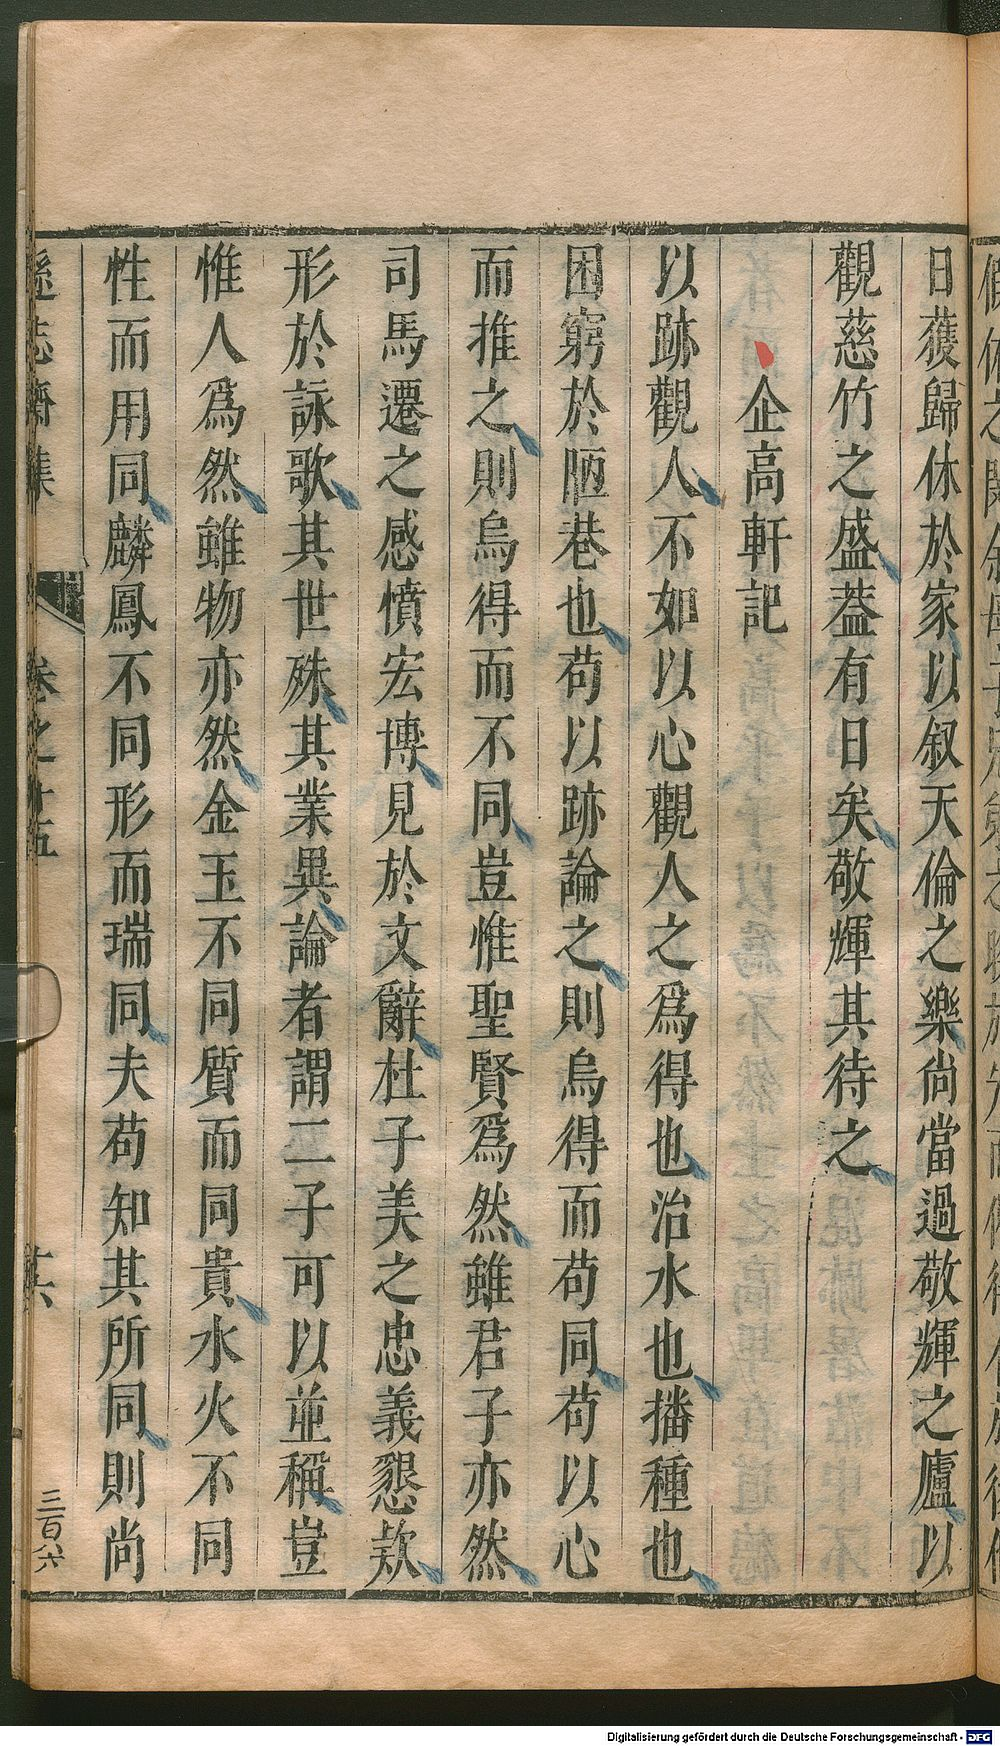 日獲歸休於家以叙天倫之樂尚當過敬輝之廬以
觀慈竹之盛葢有日矣敬輝其待之
企高軒記
以跡觀人不如以心觀人之爲得也治水也播種也
困窮於陋巷也苟以跡論之則烏得而苟同苟以心
而推之則烏得而不同豈惟聖賢爲然雖君子亦然
司馬遷之感憤宏博見於文辭杜子美之忠義懇欵
形於詠歌其世殊其業異論者謂二子可以並稱豈
惟人爲然雖物亦然金玉不同質而同貴水火不同
性而用同麟鳳不同形而瑞同夫苟知其所同則尚
遜志齋集 卷之十五 三百八六
Digitalisierung gefördert durch die Deutsche Forschungsgemeinschaft - DFG